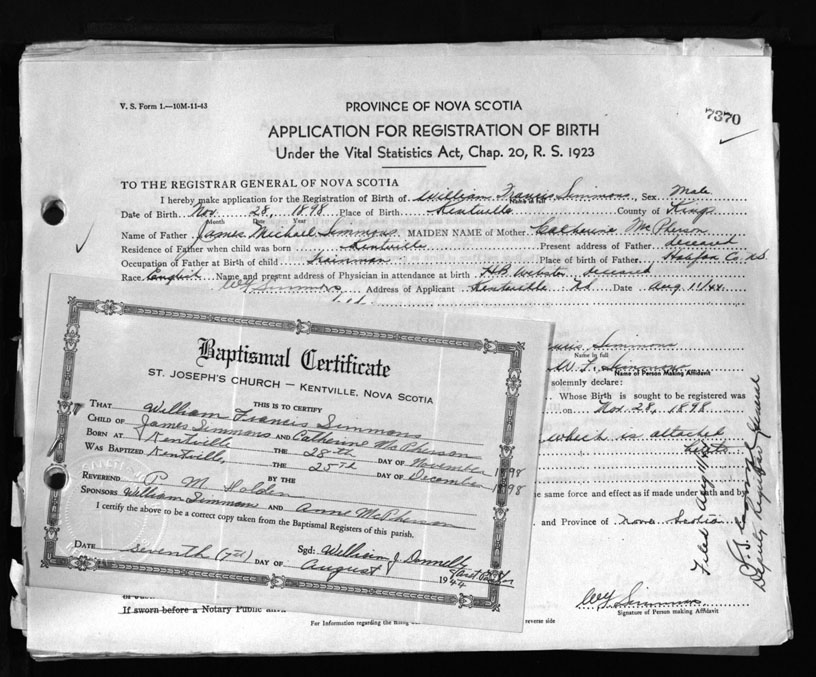 V. S. Form 1.—10M-11-43
PROVINCE OF NOVA SCOTIA
7370
APPLICATION FOR REGISTRATION OF BIRTH
Under the Vital Statistics Act, Chap. 20, R. S. 1923
TO THE REGISTRAR GENERAL OF NOVA SCOTIA
I hereby make application for the Registration of Birth of William Francis Simmons, Sex Male
Name in full
Date of Birth Nov. 28, 1898 Place of Birth Kentville County of Kings
Month Date Year
Name of Father James Michael Simmons MAIDEN NAME of Mother Catherine McPherson
Residence of Father when child was born Kentville Present address of Father deceased
Occupation of Father at Birth of child Trainman Place of birth of Father Halifax Co. N.S.
Race English Name and present address of Physician in attendance at birth H.B. Webster deceased
WF Simmons Address of Applicant Kentville Date Aug 11/44
Baptismal Certificate
ST. JOSEPH'S CHURCH — KENTVILLE, NOVA SCOTIA
THIS IS TO CERTIFY
THAT William Francis Simmons
CHILD OF James Simmons AND Catherine McPherson
BORN AT Kentville THE 28th DAY OF November 1898
WAS BAPTIZED Kentville THE 25th DAY OF December 1898
BY THE
REVEREND P. M. Holden
SPONSORS William Simmons AND Anne McPherson
I certify the above to be a correct copy taken from the Baptismal Registers of this parish.
DATE Seventh (7th) DAY OF August 1944
Sgd: William J. Donnelly
Francis Simmons
Name in full
W. F. Simmons
Name of Person Making Affidavit
solemnly declare:
Whose Birth is sought to be registered was
on Nov. 28, 1898
which is attached
hereto
the same force and effect as if made under oath and by
and Province of Nova Scotia
Filed Aug
Deputy Registrar General
WF Simmons
Signature of Person making Affidavit
If sworn before a Notary Public
For Information regarding the filing
reverse side